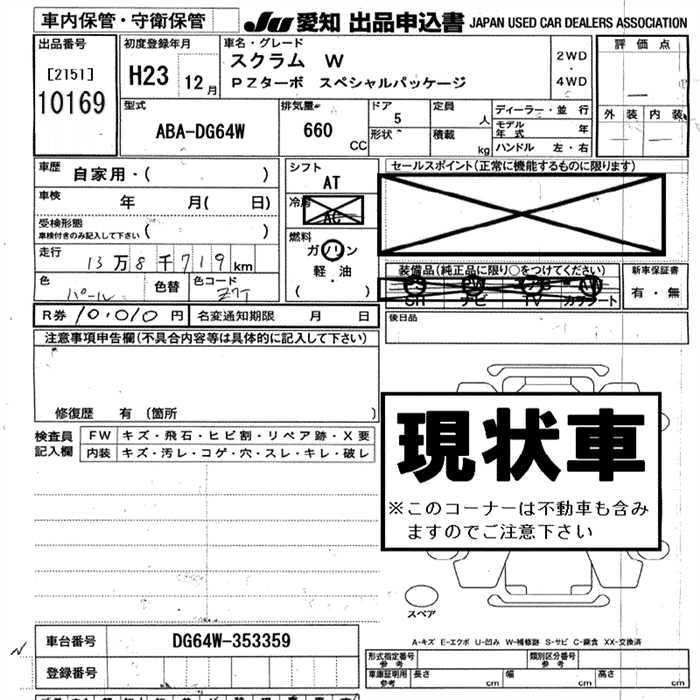 車内保管・守衛保管
JU 愛知 出品申込書 JAPAN USED CAR DEALERS ASSOCIATION
出品番号
[2151]
10169
初度登録年月
H23 12月
車名・グレード
スクラム W
PZターボ スペシャルパッケージ
2WD
・
4WD
評価点
外装 内装
型式
ABA-DG64W
排気量
660
CC
ドア
5
形状
定員
人
積載
kg
ディーラー・並行
モデル年式 年
ハンドル 左・右
車歴
自家用・( )
車検
年 月( 日)
受検形態
車検付きのみ記入して下さい ( )
走行
13万8千719km
色
パール
色替
色コード
シフト
AT
冷房
AC
燃料
ガソリン
軽・油
( )
セールスポイント(正常に機能するものに限ります)
装備品(純正品に限り○をつけてください)
SR ナビ TV カワシート
新車保証書
有・無
R券 10,010 円 名変通知期限 月 日
後日品
注意事項申告欄(不具合内容等は具体的に記入して下さい)
修復歴 有 (箇所 )
検査員記入欄
FW キズ・飛石・ヒビ割・リペア跡・X要
内装 キズ・汚レ・コゲ・穴・スレ・キレ・破レ
現状車
※このコーナーは不動車も含み
ますのでご注意下さい
スペア
A-キズ E-エクボ U-凹み W-補修跡 S-サビ C-腐食 XX-交換済
車台番号 DG64W-353359
登録番号
形式指定番号
参考
類別区分番号
参考
車庫証明用
参考
長さ cm 幅 cm 高さ cm